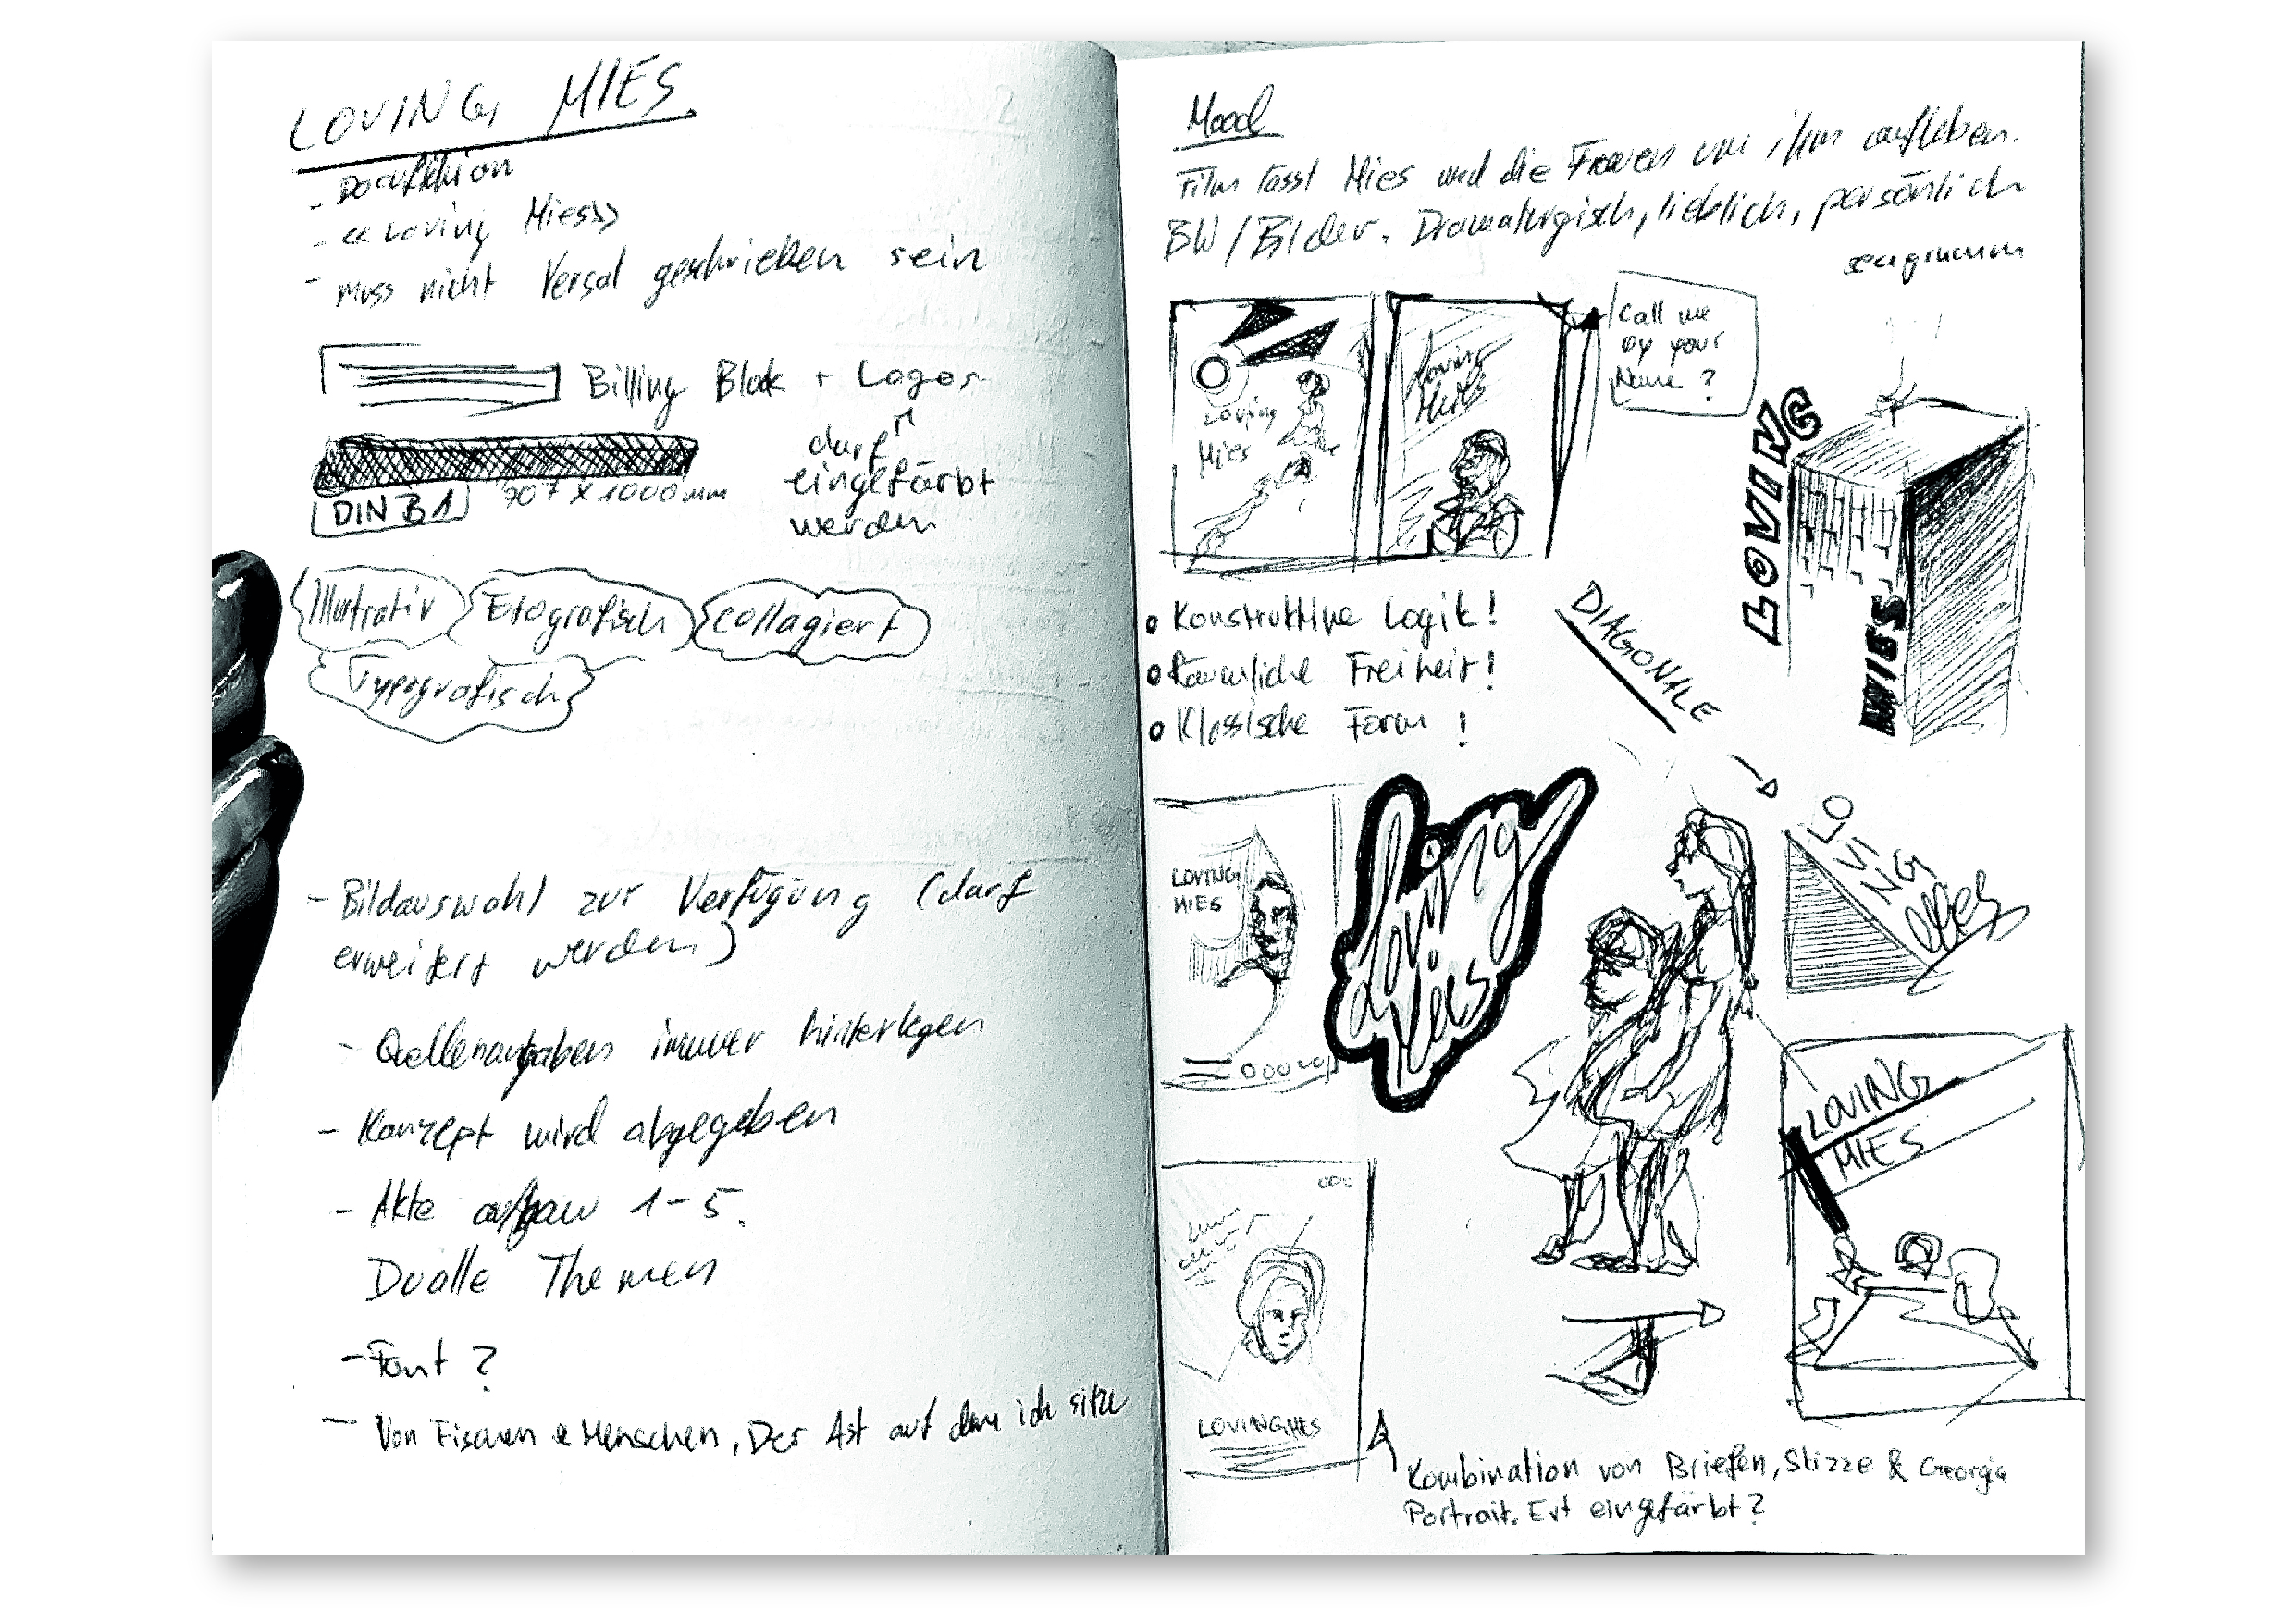 LOVING MIES
- Docufiktion
- «Loving Mies»
- muss nicht Versal geschrieben sein
Billing Block + Logos
darf
eingefärbt
werden
DIN B1 707 x 1000mm
Illustrativ Fotografisch collagiert
Typografisch
- Bildauswahl zur Verfügung (darf
erweitert werden)
- Quellenangaben immer hinterlegen
- Konzept wird abgegeben
- Akte aufbau 1-5.
Dualle Themen
- Font ?
- Von Fischen & Menschen, Der Ast auf dem ich sitze
Mood
Film lässt Mies und die Frauen um ihm aufleben.
BW/Bilder. Dramaturgisch, lieblich, persönlich
seagramm
Loving
Mies
Loving
Mies
Call me
by your
Name ?
LOVING
MIES
• Konstruktive Logik!
• Räumliche Freiheit!
• Klassische Form !
DIAGONALE
LOVING
MIES
Loving
Mies
LO
VI
NG
Mies
LOVING
MIES
LOVING MIES
Kombination von Briefen, Skizze & Georgia
Portrait. Evt eingefärbt?